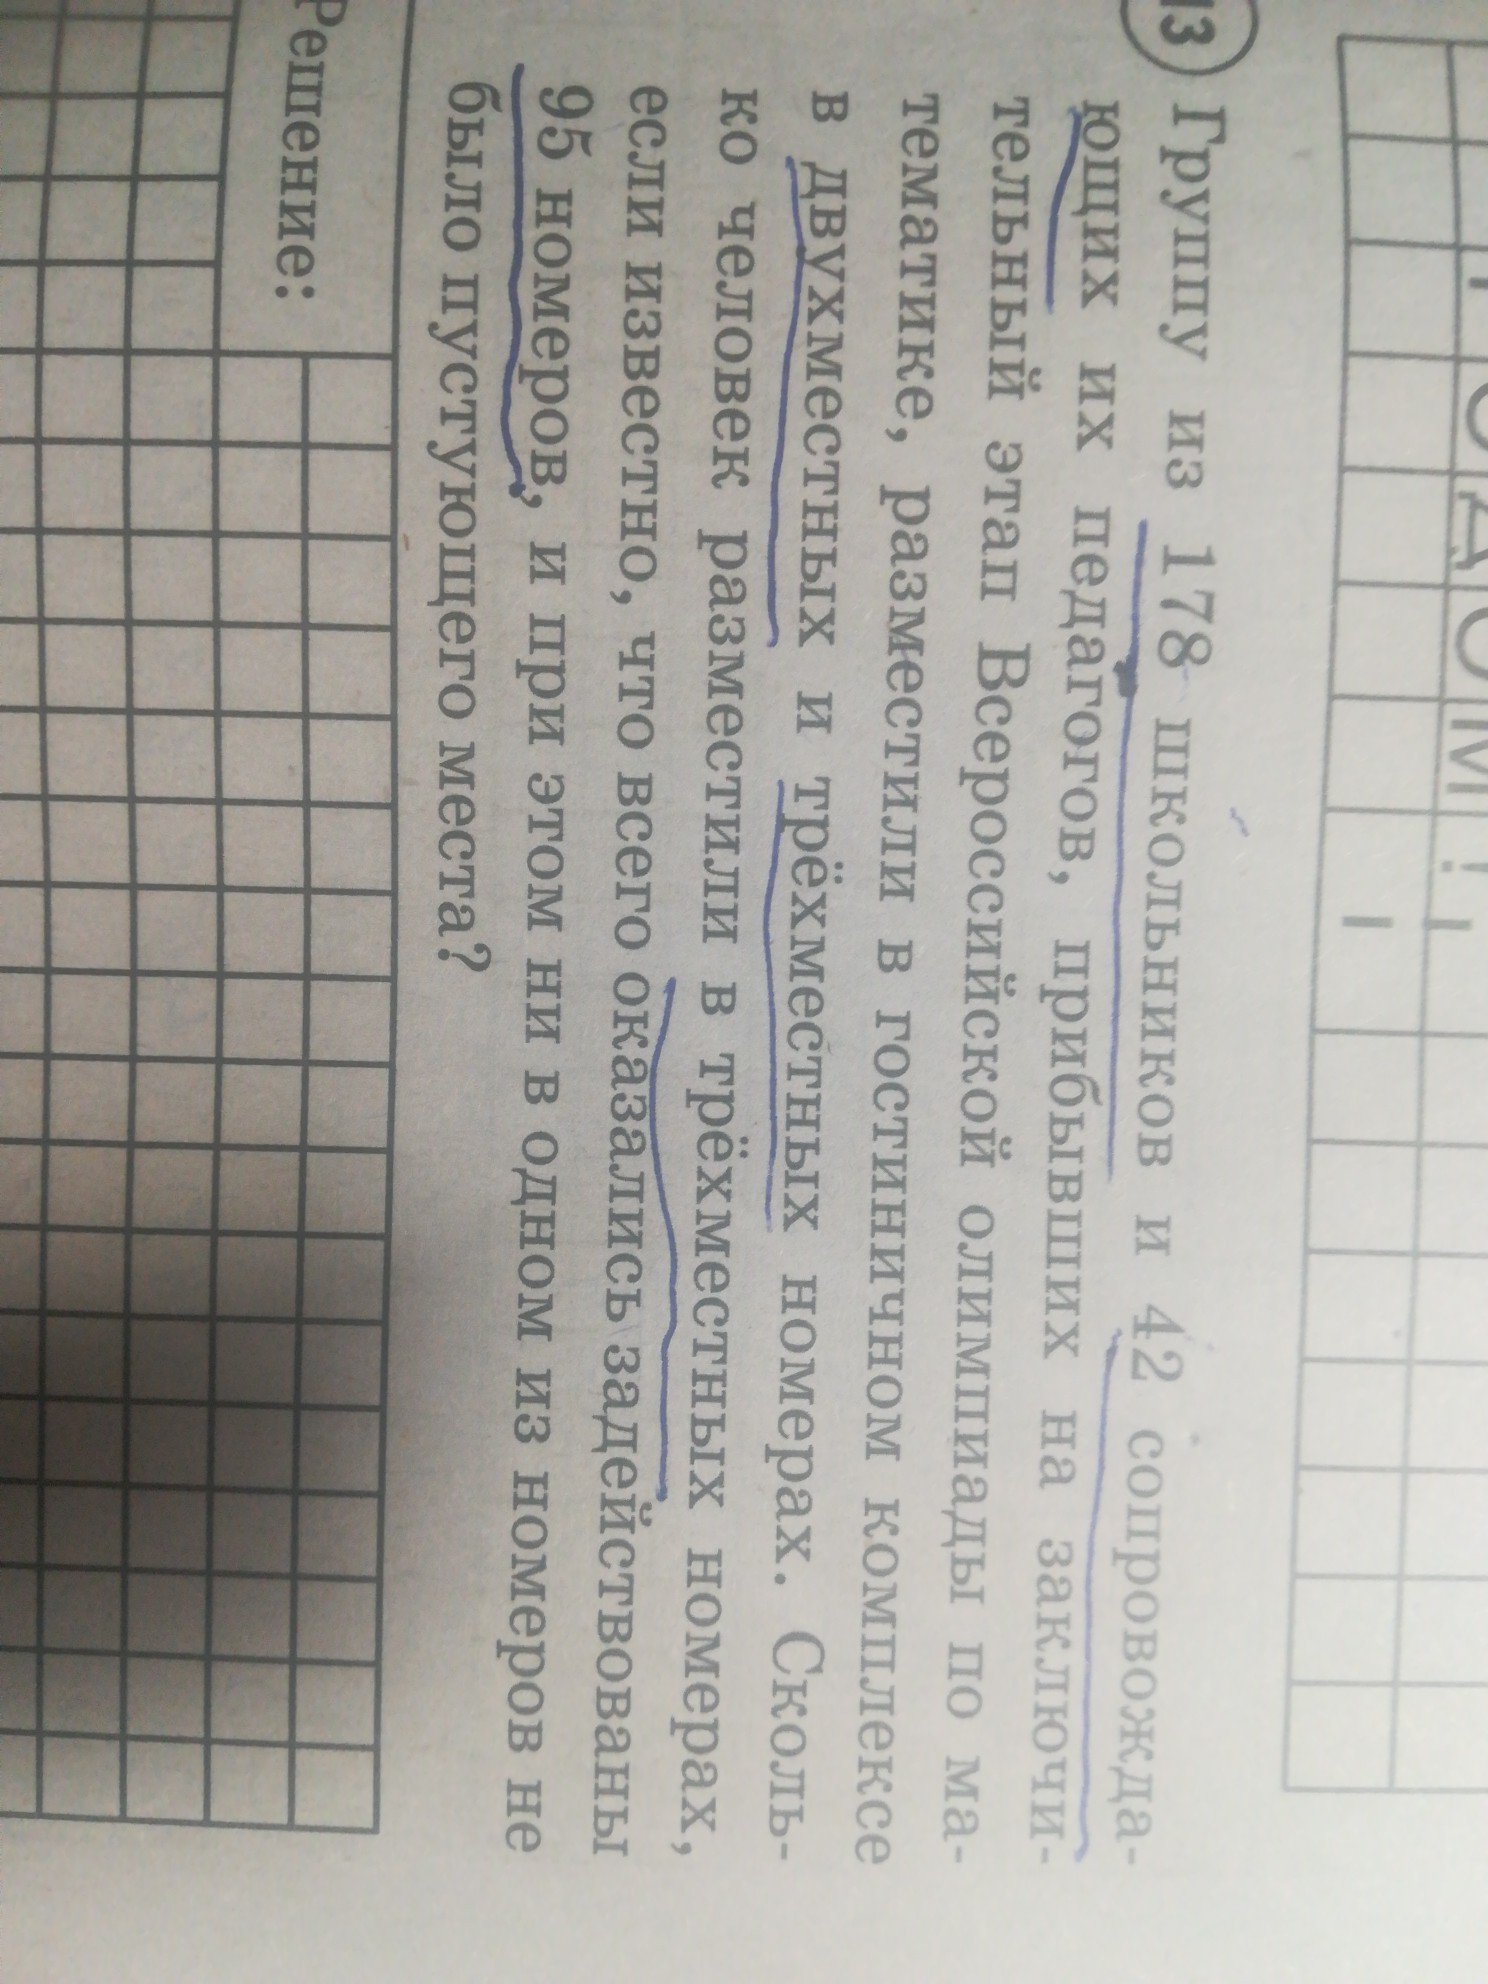 13 Группу из 178 школьников и 42 сопровожда-
ющих их педагогов, прибывших на заключи-
тельный этап Всероссийской олимпиады по ма-
тематике, разместили в гостиничном комплексе
в двухместных и трёхместных номерах. Сколь-
ко человек разместили в трёхместных номерах,
если известно, что всего оказались задействованы
95 номеров, и при этом ни в одном из номеров не
было пустующего места?
Решение: